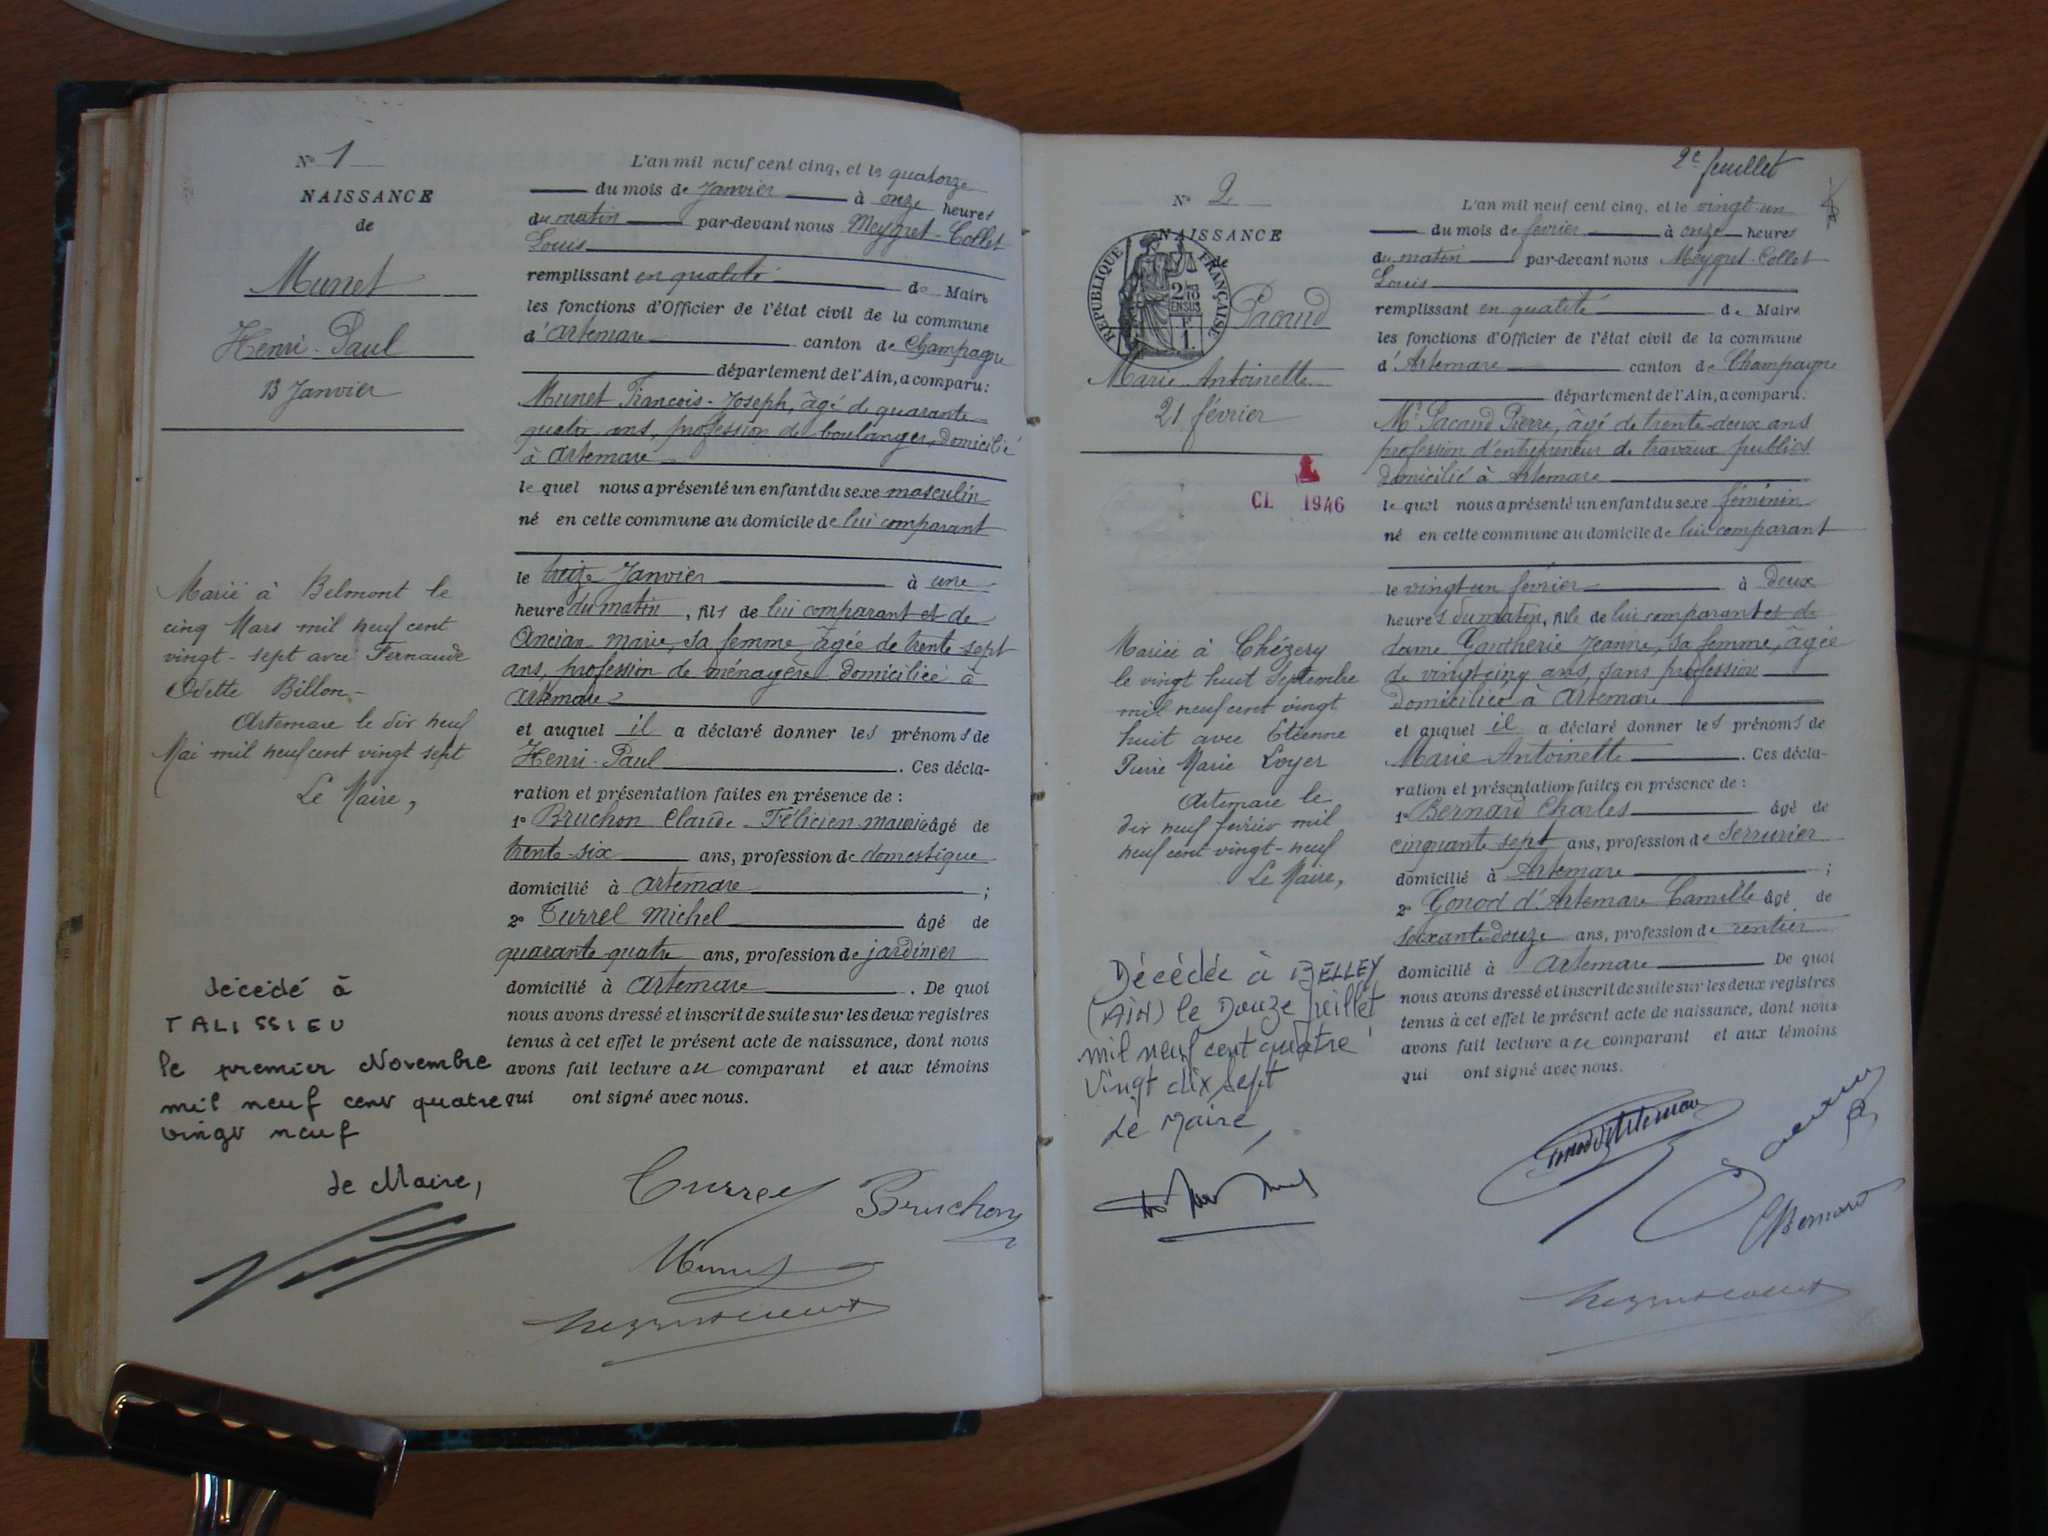 N° 1
NAISSANCE
de
Munet
Henri-Paul
13 Janvier
Marié à Belmont le
cinq Mars mil neuf cent
vingt-sept avec Fernande
Odette Billon.-
Artemare le dix neuf
Mai mil neuf cent vingt sept
Le Maire,
décédé à
TALISSIEU
le premier Novembre
mil neuf cent quatre
vingt neuf
le Maire,
L'an mil neuf cent cinq, et le quatorze
du mois de Janvier à onze heures
du matin par-devant nous Meygret-Collet
Louis
remplissant en qualité de Maire
les fonctions d'Officier de l'état civil de la commune
d'Artemare canton de Champagne
département de l'Ain, a comparu:
Munet François-Joseph, âgé de quarante
quatre ans, profession de boulanger, domicilié
à Artemare
lequel nous a présenté un enfant du sexe masculin
né en cette commune au domicile de lui comparant
le treize Janvier à une
heure du matin, fils de lui comparant et de
Ancian marie, sa femme, âgée de trente sept
ans, profession de ménagère domiciliée à
Artemare
et auquel il a déclaré donner les prénoms de
Henri-Paul. Ces décla-
ration et présentation faites en présence de :
1° Bruchon Claude-Félicien-marie âgé de
trente-six ans, profession de domestique
domicilié à Artemare ;
2° Turrel Michel âgé de
quarante-quatre ans, profession de jardinier
domicilié à Artemare. De quoi
nous avons dressé et inscrit de suite sur les deux registres
tenus à cet effet le présent acte de naissance, dont nous
avons fait lecture au comparant et aux témoins
qui ont signé avec nous.
Turrel Bruchon
Munet
Meygret-Collet
2e feuillet
N° 2
NAISSANCE
de
RÉPUBLIQUE FRANÇAISE
Pacaud
Marie Antoinette
21 février
CL 1946
Mariée à Chézery
le vingt huit Septembre
mil neuf cent vingt
huit avec Etienne
Pierre Marie Loyer
Artemare le
dix neuf février mil
neuf cent vingt-neuf
Le Maire,
Décédée à BELLEY
(AIN) le Douze juillet
mil neuf cent quatre
vingt dix sept
Le Maire,
L'an mil neuf cent cinq, et le vingt-un
du mois de février à onze heures
du matin par-devant nous Meygret-Collet
Louis
remplissant en qualité de Maire
les fonctions d'Officier de l'état civil de la commune
d'Artemare canton de Champagne
département de l'Ain, a comparu:
Mr Pacaud Pierre, âgé de trente-deux ans
profession d'entrepreneur de travaux publics
domicilié à Artemare
lequel nous a présenté un enfant du sexe féminin
né en cette commune au domicile de lui comparant
le vingt-un février à deux
heures du matin, fille de lui comparant et de
dame Jeanne, sa femme, âgée
de vingt cinq ans, sans profession
domiciliée à Artemare
et auquel il a déclaré donner les prénoms de
Marie Antoinette. Ces décla-
ration et présentation faites en présence de :
1° Bernard Charles âgé de
cinquante sept ans, profession de Serrurier
domicilié à Artemare ;
2° Gonod d'Artemare Camille âgé de
soixante-douze ans, profession de rentier
domicilié à Artemare De quoi
nous avons dressé et inscrit de suite sur les deux registres
tenus à cet effet le présent acte de naissance, dont nous
avons fait lecture au comparant et aux témoins
qui ont signé avec nous.
Gonod d'Artemare
Bernard
Meygret-Collet